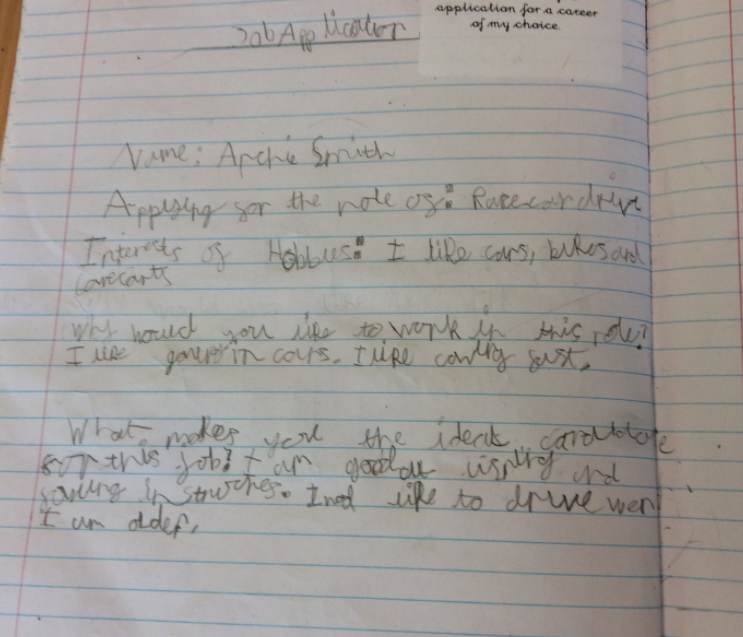 application for a career
of my choice
Job Application
Name: Archie Smith
Applying for the role of: Racecar drive
Interests of Hobbies: I like cars, bikes and
Why would you like to work in this role?
I like in cars. I like fast.
What makes you the ideal
for this job? I am good at and
in I like to drive wen
I am older.